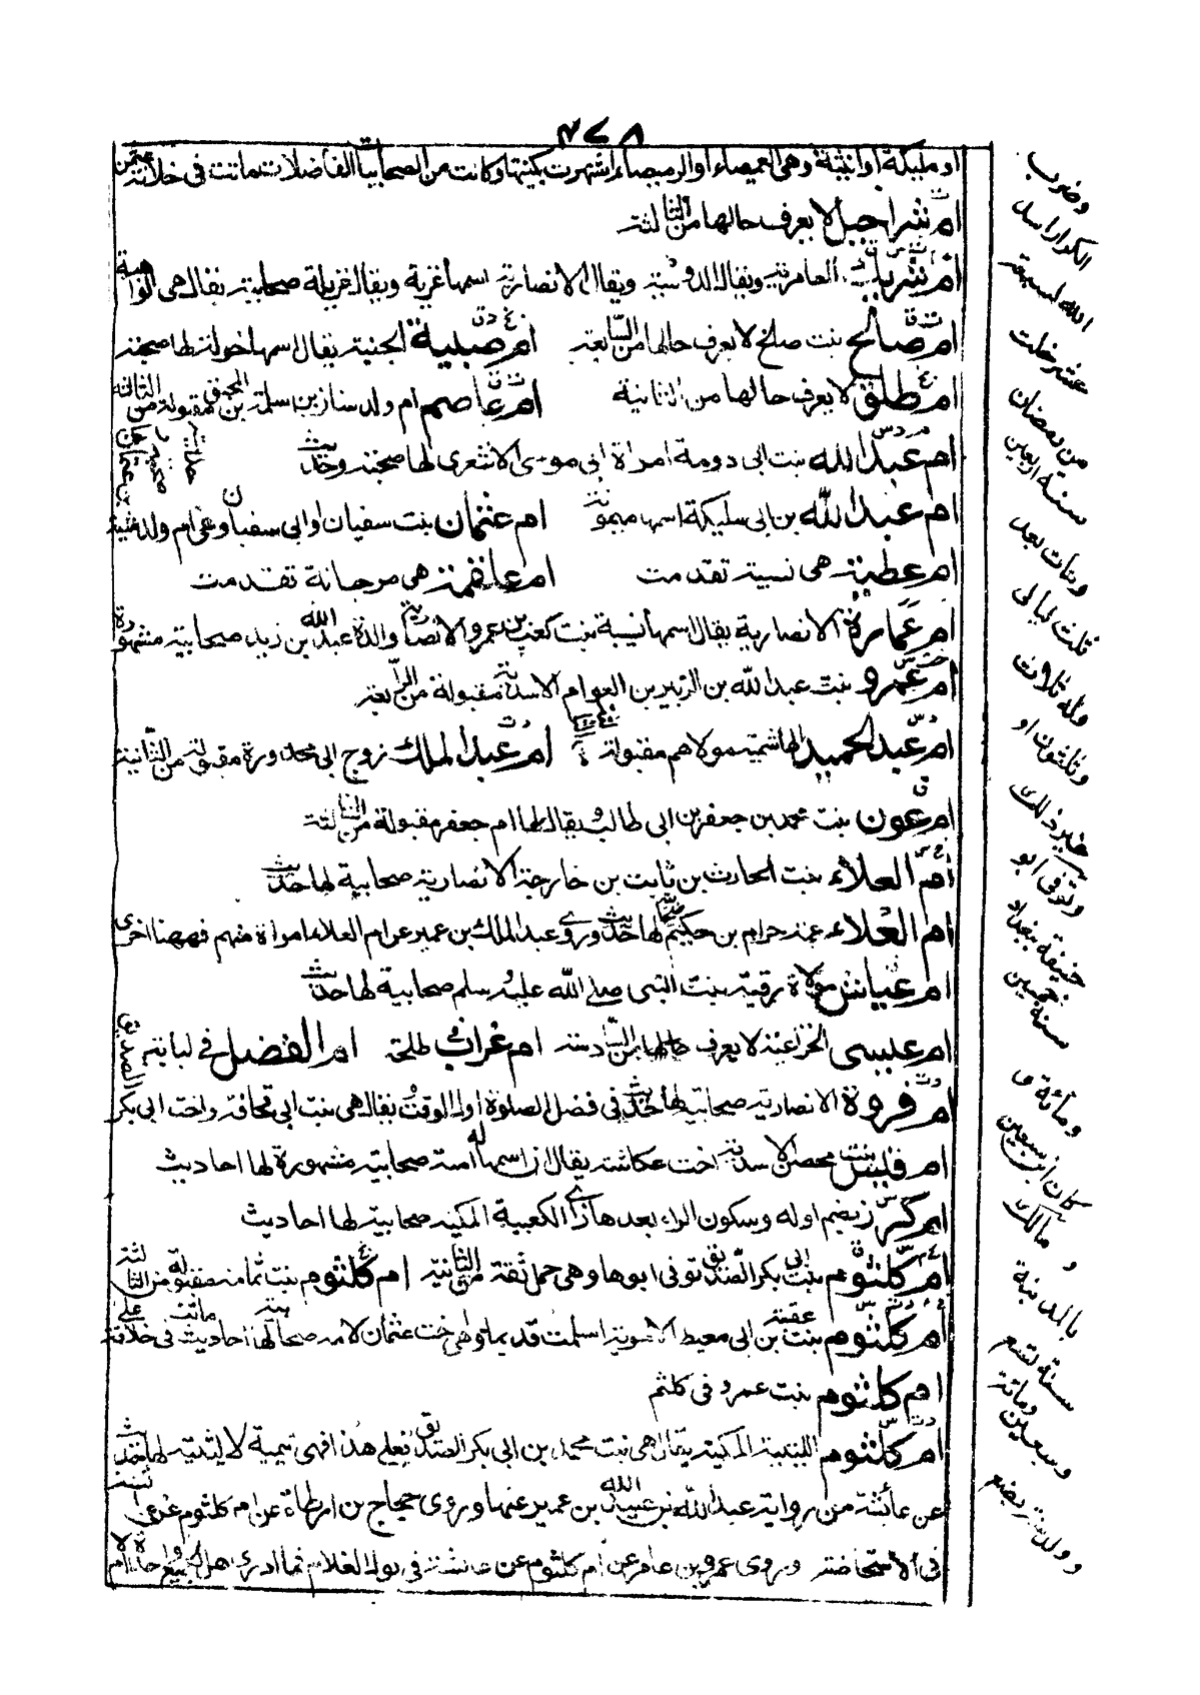 ٣٧٨
او مليكة او انيثة وهى الغميصاء او الرميصاء اشتهرت بكنيتها وكانت من الصحابيات الفاضلات ماتت فى خلافة عثمن
ام شراحيل لا يعرف حالها من الثالثة
ام شريك العامرية ويقال الدوسية ويقال الانصارية اسمها غزية ويقال غزيلة صحابية يقال هى الواهبة
ام صالح بنت صالح لا يعرف حالها من السابعة ام صبية الجهنية يقال اسمها خولة لها صحبة
ام طلق لا يعرف حالها من الثانية ام عاصم ام ولد سنان بن سلمة بن المحبق مقبولة من الثالثة
ام عبد الله بنت ابى دومة امراة ابى موسى الاشعرى لها صحبة وحديث
ام عبد الله بن ابى مليكة اسمها ميمونة ام عثمان بنت سفيان او ابى سفيان وهى ام ولد شيبة
بن عثمان لها صحبة و حديث
ام عطية هى نسيبة تقدمت ام علقمة هى مرجانة تقدمت
ام عمارة الانصارية يقال اسمها نسيبة بنت كعب بن عمرو الانصارية والدة عبد الله بن زيد صحابية مشهورة
ام عمرو بنت عبد الله بن الزبير بن العوام الاسدية مقبولة من الرابعة
ام عبد الحميد الهاشمية مولاهم مقبولة ام عبد الملك زوج ابى محذورة مقبولة من الثانية
ام عون بنت محمد بن جعفر بن ابى طالب ويقال لها ام جعفر مقبولة من الثالثة
ام العلاء بنت الحارث بن ثابت بن خارجة الانصارية صحابية لها حديث
ام العلاء عمة حرام بن حكيم لها حديث وروى عبد الملك بن عمير عن ام العلاء امراة منهم فهى هنا اخرى
ام عياش مولاة رقية بنت النبى صلى الله عليه وسلم صحابية لها حديث
ام عيسى الخزاعية لا يعرف حالها من السادسة ام غراب فى طلحة ام الفضل فى لبابة
ام فروة الانصارية صحابية لها حديث فى فضل الصلوة اول الوقت ويقال هى بنت ابى قحافة واخت ابى بكر الصديق
ام قيس بنت محصن الاسدية اخت عكاشة يقال ان اسمها امنة صحابية مشهورة لها احاديث
ام كرز بضم اوله وسكون الراء بعدها زاى الكعبية المكية صحابية لها احاديث
ام كلثوم بنت ابى بكر الصديق توفى ابوها وهى حمل ثقة من الثانية ام كلثوم بنت ثمامة مقبولة من الثالثة
ام كلثوم بنت عقبة بن ابى معيط الاموية اسلمت قديما وهى اخت عثمان لامه صحابية لها احاديث ماتت فى خلافة على
ام كلثوم بنت عمرو فى كلثم
ام كلثوم الليثية المكية يقال هى بنت محمد بن ابى بكر الصديق فعلى هذا فهى تيمية لا ليثية لها حديث
عن عائشة من رواية عبد الله بن عبيد الله بن عمير عنها وروى حجاج بن ارطاة عن ام كلثوم عن عائشة
فى الاستحاضة وروى عمرو بن عامر عن ام كلثوم عن عائشة فى بول الغلام فما ادرى هل الجميع واحدة ام لا
وضرب
الكوار اسد
الله لسبعة
عشر خلت
من رمضان
سنة اربعين
ومات بعد
ثلث ليالى
وله ثلاث
وثلثون او
غير ذلك
وتوفى ابو
حنيفة ببغداد
سنة خمسين
ومائة و
كان ابن سبعين
و مالك
بالمدينة
سنة تسع
وسبعين ومائة
وولد بضع